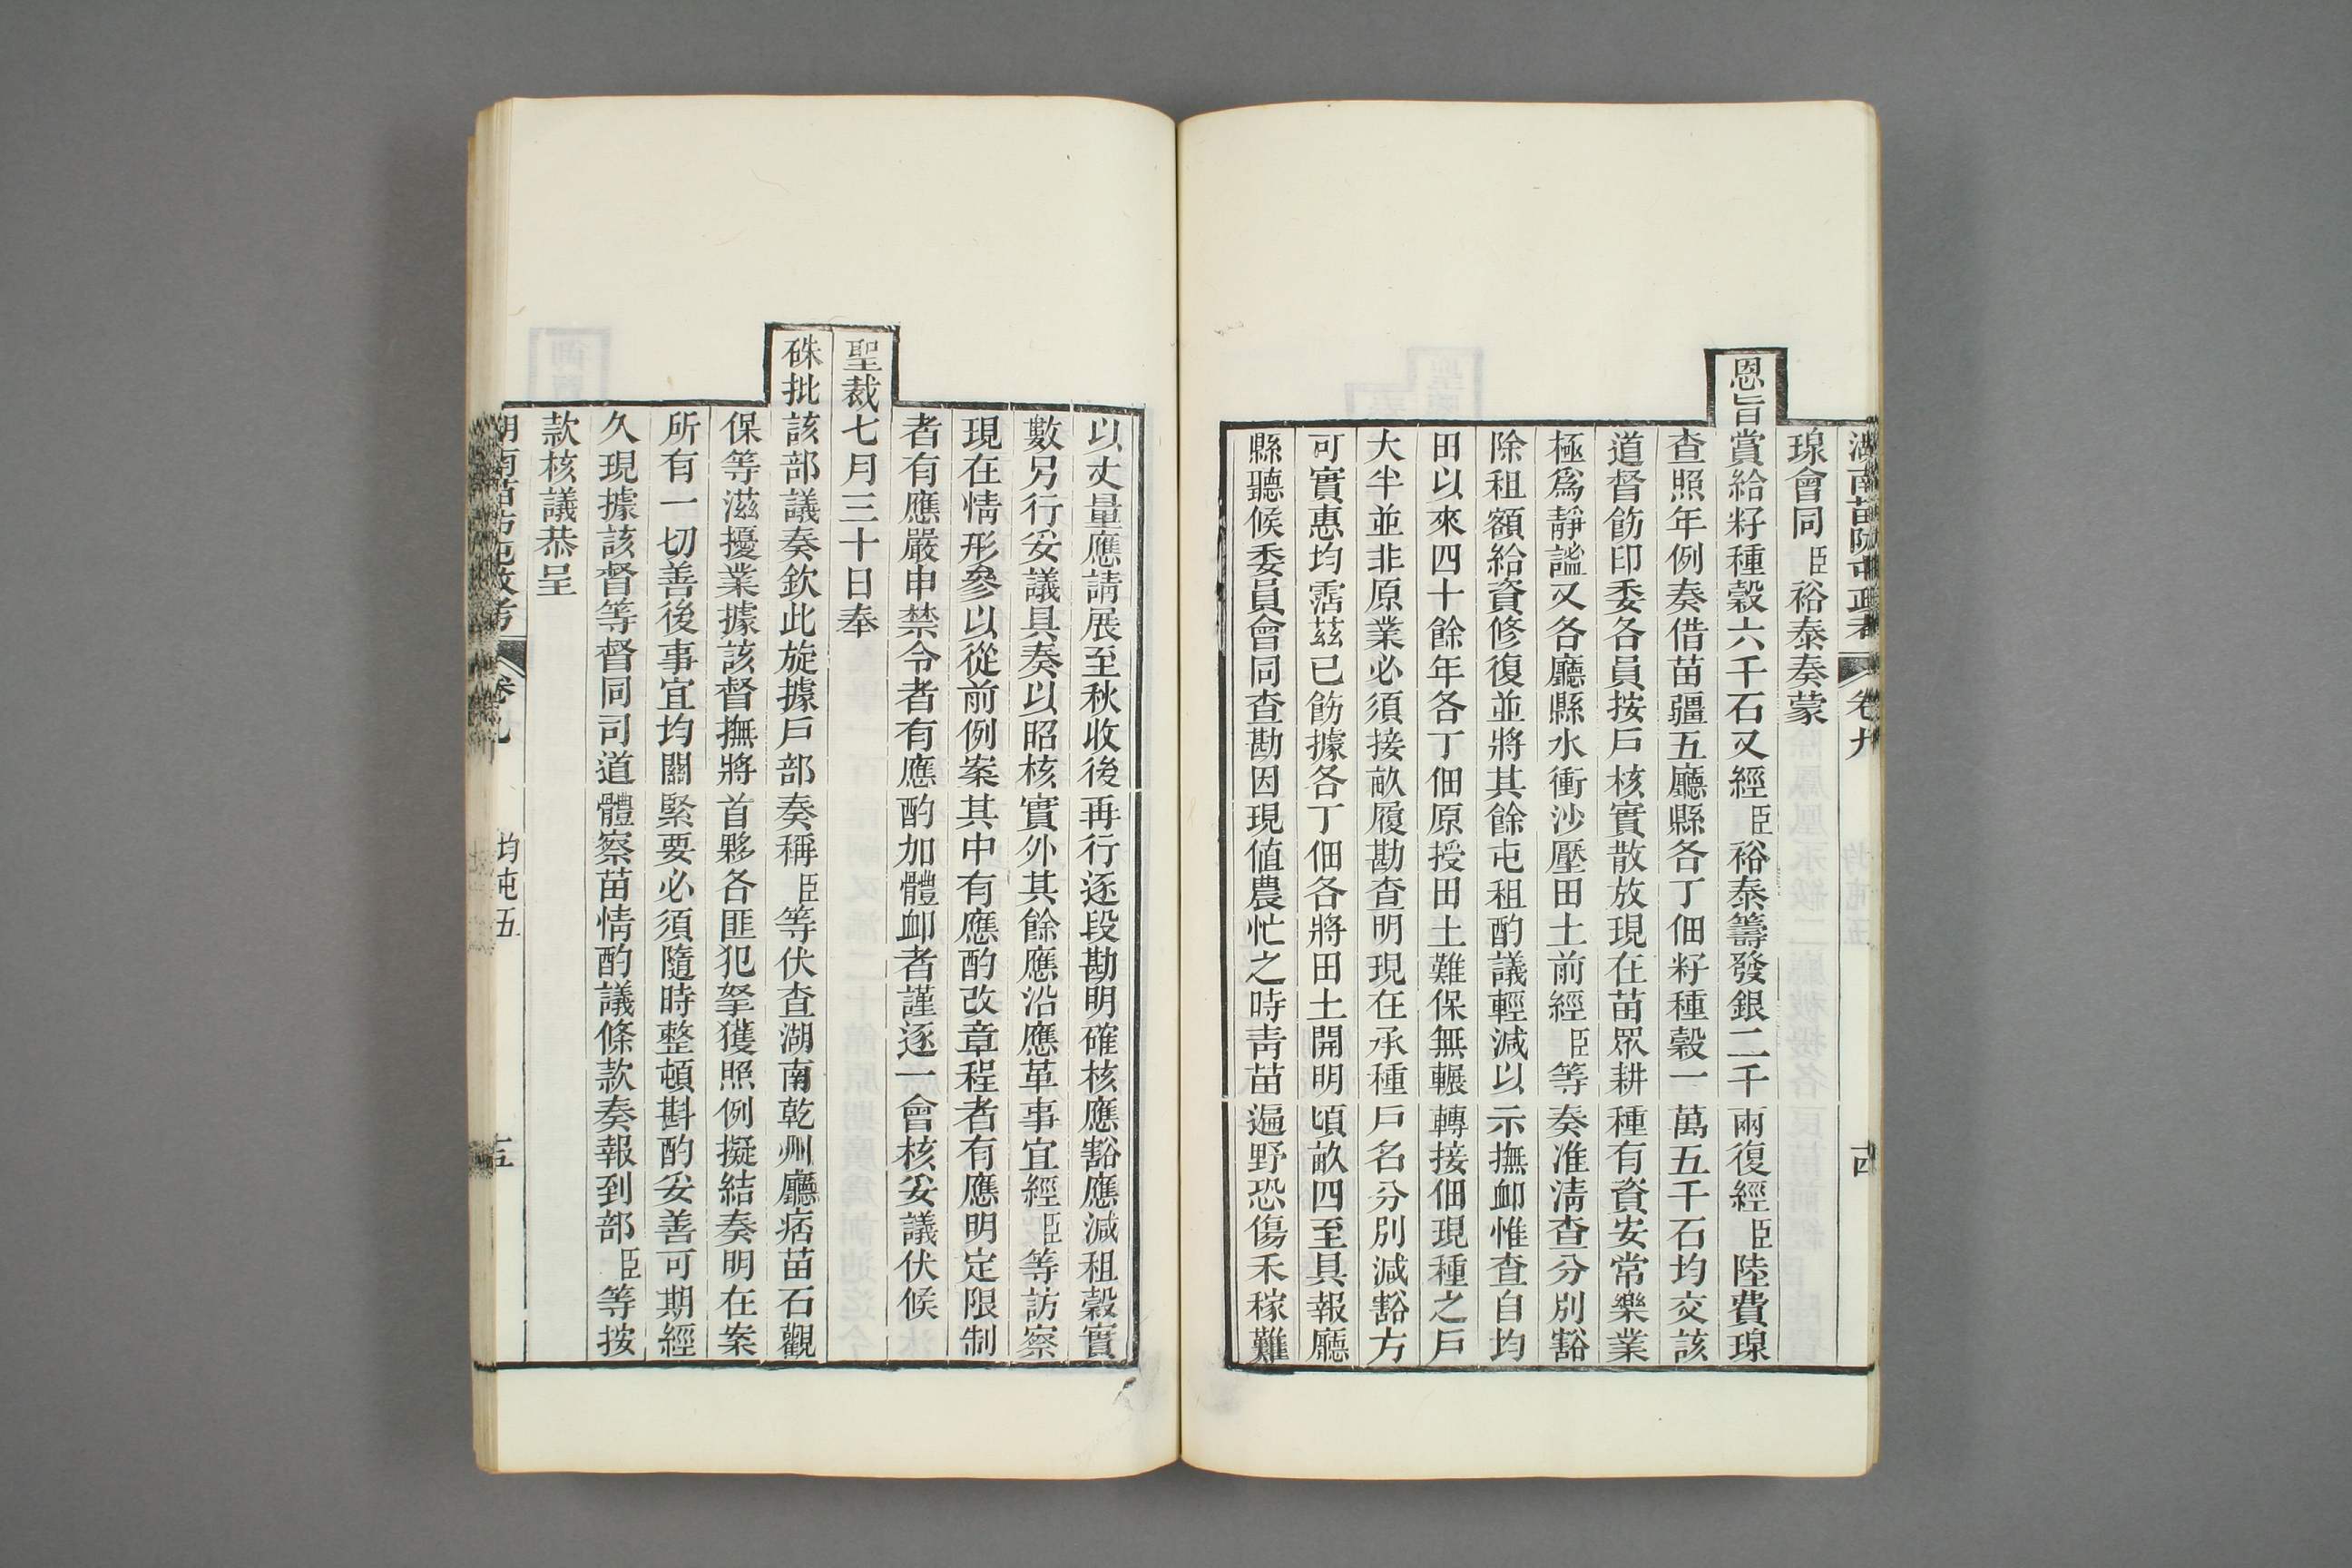 湖南苗防屯政考 卷九 十四
瑔會同臣裕泰奏蒙
恩旨賞給籽種穀六千石又經臣裕泰籌發銀二千兩復經臣陸費瑔
查照年例奏借苗疆五廳縣各丁佃籽種穀一萬五千石均交該
道督飭印委各員按戶核實散放現在苗眾耕種有資安常樂業
極爲靜謐又各廳縣水衝沙壓田土前經臣等奏准淸查分別豁
除租額給資修復並將其餘屯租酌議輕減以示撫卹惟查自均
田以來四十餘年各丁佃原授田土難保無輾轉接佃現種之戶
大半並非原業必須接畝履勘查明現在承種戶名分別減豁方
可實惠均霑茲已飭據各丁佃各將田土開明頃畝四至具報廳
縣聽候委員會同查勘因現値農忙之時靑苗遍野恐傷禾稼難
以丈量應請展至秋收後再行逐段勘明確核應豁應減租穀實
數另行妥議具奏以昭核實外其餘應沿應革事宜經臣等訪察
現在情形參以從前例案其中有應酌改章程者有應明定限制
者有應嚴申禁令者有應酌加體卹者謹逐一會核妥議伏候
聖裁七月三十日奉
硃批該部議奏欽此旋據戶部奏稱臣等伏查湖南乾州廳痞苗石觀
保等滋擾業據該督撫將首夥各匪犯拏獲照例擬結奏明在案
所有一切善後事宜均關緊要必須隨時整頓斟酌妥善可期經
久現據該督等督同司道體察苗情酌議條款奏報到部臣等按
款核議恭呈
湖南苗防屯政考 卷九 均屯五 十五